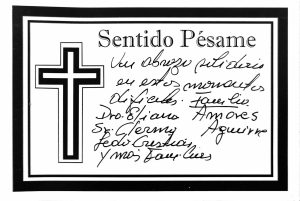 Sentido Pésame
Un abrazo solidario
en estos momentos
difíciles. Familia
Dra. Eliana Amores
Sr. Aguirre
y más familiares